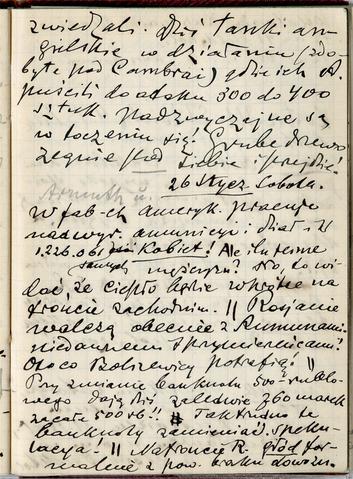 zwiedzali. Dziś tanki an
gielskie w działaniu (zdo-
byte pod Cambrai) gdzie ich A.
puścili do ataku 300 do 400
sztuk. Nadzwyczajne są
w toczeniu się! Grube drzewo
zegnie pod siebie i przejdzie!
26 Stycz Sobota.
W fab-ch ameryk. pracuje
nadwyr. amunicyi i dział
1.226.061 Kobiet! Ale ilu
samych mężczyzn? No, to wi-
dać, że ciepło będzie wkrótce na
froncie zachodnim. || Rosjanie
walczą obecnie z Rumunami
niedawnemi sprzymierzeńcami!
Oto co Bolszewicy potrafią! ||
Przy zmianie banknotu 500-rublo-
wego dają dziś zaledwie 360 marek
za całe 500 rb!! Tak trudno te
banknoty zamieniać, speku-
lacja! || Na froncie R. głód for-
malnie z pow. braku dowozu.